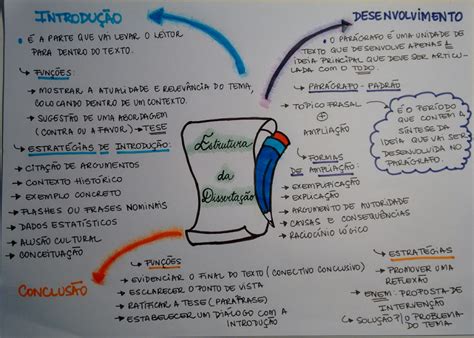 INTRODUÇÃO
• É A PARTE QUE VAI LEVAR O LEITOR
PARA DENTRO DO TEXTO.
→ FUNÇÕES:
→ MOSTRAR A ATUALIDADE E RELEVÂNCIA DO TEMA,
COLOCANDO DENTRO DE UM CONTEXTO.
→ SUGESTÃO DE UMA ABORDAGEM
(CONTRA OU A FAVOR) → TESE
→ ESTRATÉGIAS DE INTRODUÇÃO:
→ CITAÇÃO DE ARGUMENTOS
→ CONTEXTO HISTÓRICO
→ EXEMPLO CONCRETO
→ FLASHES OU FRASES NOMINAIS
→ DADOS ESTATÍSTICOS
→ ALUSÃO CULTURAL
→ CONCEITUAÇÃO
Estrutura
da
Dissertação
DESENVOLVIMENTO
• O PARÁGRAFO É UMA UNIDADE DE
TEXTO QUE DESENVOLVE APENAS 1
IDEIA PRINCIPAL QUE DEVE SER ARTICU-
LADA COM O TODO.
→ PARÁGRAFO - PADRÃO
→ TÓPICO FRASAL
+
AMPLIAÇÃO
É O PERÍODO
QUE CONTÉM A
SÍNTESE DA
IDEIA QUE VAI SER
DESENVOLVIDA NO
PARÁGRAFO.
→ FORMAS
DE AMPLIAÇÃO:
→ EXEMPLIFICAÇÃO
→ EXPLICAÇÃO
→ ARGUMENTO DE AUTORIDADE
→ CAUSAS E CONSEQUÊNCIAS
→ RACIOCÍNIO LÓGICO
CONCLUSÃO
→ FUNÇÕES
→ EVIDENCIAR O FINAL DO TEXTO (CONECTIVO CONCLUSIVO)
→ ESCLARECER O PONTO DE VISTA
→ RATIFICAR A TESE (PARÁFRASE)
→ ESTABELECER UM DIÁLOGO COM A
INTRODUÇÃO
→ ESTRATÉGIAS
→ PROMOVER UMA
REFLEXÃO
→ ENEM: PROPOSTA DE
INTERVENÇÃO
↳ SOLUÇÃO P/ O PROBLEMA
DO TEMA